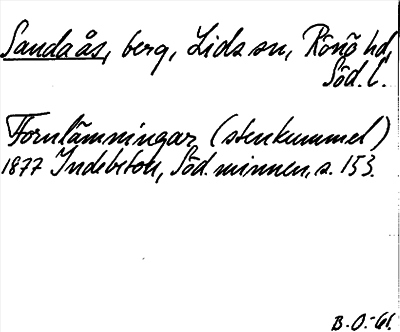 Sanda ås, berg, Lids sn, Rönö hd,
Söd. l.
Fornlämningar (stenkummel)
1877 Indebetou, Söd. minnen, s. 153.
B.O.-61.